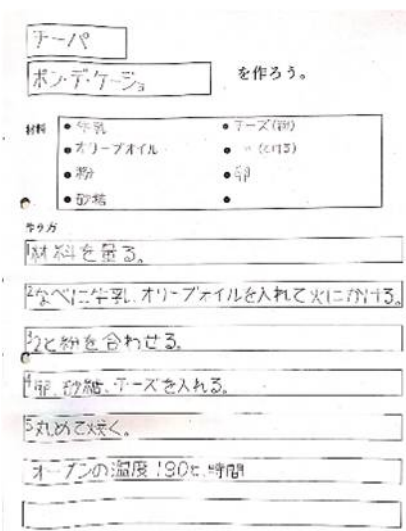 チーパ
ポン・デ・ケージョ を作ろう。
材料
● 牛乳 ● チーズ(粉)
● オリーブオイル ● 〃 (とける)
● 粉 ● 卵
● 砂糖 ●
作り方
1材料を量る。
2なべに牛乳、オリーブオイルを入れて火にかける。
32と粉を合わせる。
4卵、砂糖、チーズを入れる。
5丸めて焼く。
オーブンの温度 180℃ 時間